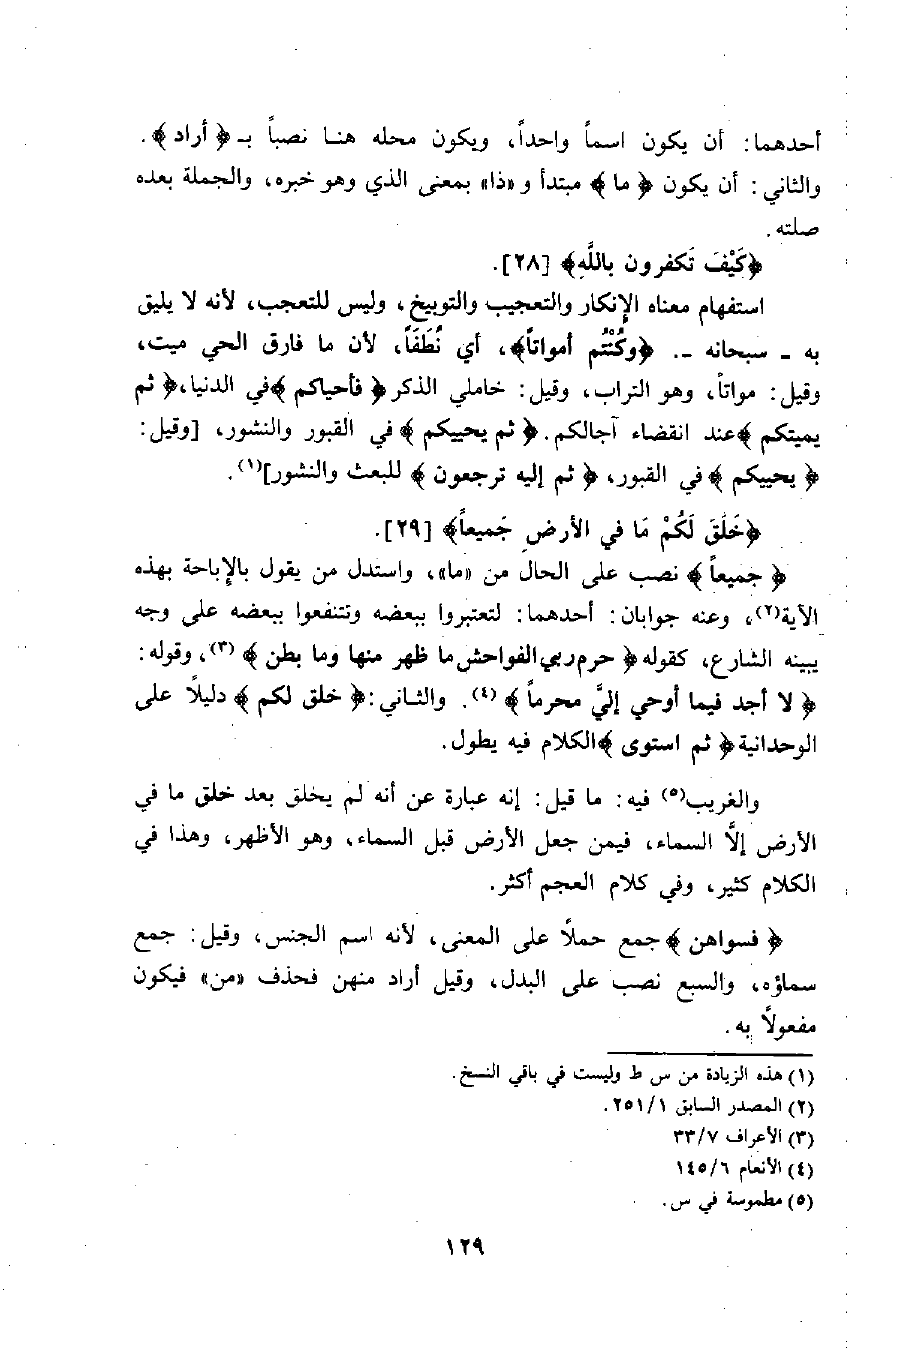 أحدهما: أن يكون اسماً واحداً، ويكون محله هنا نصباً بـ ﴿أراد﴾.
والثاني: أن يكون ﴿ ما ﴾ مبتدأ و «ذا» بمعنى الذي وهو خبره، والجملة بعده
صلته.
﴿كَيْفَ تَكفرون باللَّهِ﴾ [٢٨].
استفهام معناه الإنكار والتعجيب والتوبيخ، وليس للتعجب، لأنه لا يليق
به ـ سبحانه ـ. ﴿وكُنْتُم أمواتاً﴾، أي نُطَفَاً، لأن ما فارق الحي ميت،
وقيل: مواتاً، وهو التراب، وقيل: خاملي الذكر ﴿ فأحياكم ﴾ في الدنيا، ﴿ ثم
يميتكم ﴾ عند انقضاء آجالكم. ﴿ ثم يحييكم ﴾ في القبور والنشور، [وقيل:
﴿ يحييكم ﴾ في القبور، ﴿ ثم إليه ترجعون ﴾ للبعث والنشور](١).
﴿خَلَقَ لَكُمْ مَا في الأرضِ جَميعاً﴾ [٢٩].
﴿ جميعاً ﴾ نصب على الحال من «ما»، واستدل من يقول بالإباحة بهذه
الآية(٢)، وعنه جوابان: أحدهما: لتعتبروا ببعضه وتنتفعوا ببعضه على وجه
يبينه الشارع، كقوله ﴿ حرم ربي الفواحش ما ظهر منها وما بطن ﴾ (٣)، وقوله:
﴿ لا أجد فيما أوحي إليَّ محرماً ﴾ (٤). والثاني: ﴿ خلق لكم ﴾ دليلاً على
الوحدانية ﴿ ثم استوى ﴾ الكلام فيه يطول.
والغريب(٥) فيه: ما قيل: إنه عبارة عن أنه لم يخلق بعد خلق ما في
الأرض إلَّا السماء، فيمن جعل الأرض قبل السماء، وهو الأظهر، وهذا في
الكلام كثير، وفي كلام العجم أكثر.
﴿ فسواهن ﴾ جمع حملاً على المعنى، لأنه اسم الجنس، وقيل: جمع
سماؤه، والسبع نصب على البدل، وقيل أراد منهن فحذف «من» فيكون
مفعولاً به.
(١) هذه الزيادة من س ط وليست في باقي النسخ.
(٢) المصدر السابق ٢٥١/١.
(٣) الأعراف ٣٣/٧
(٤) الأنعام ١٤٥/٦
(٥) مطموسة في س.
١٢٩